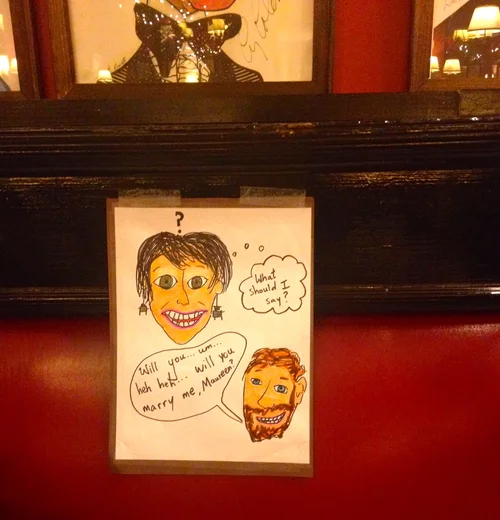 ?
What
should I
say?
Will you... um...
heh heh... will you
marry me, Maureen?